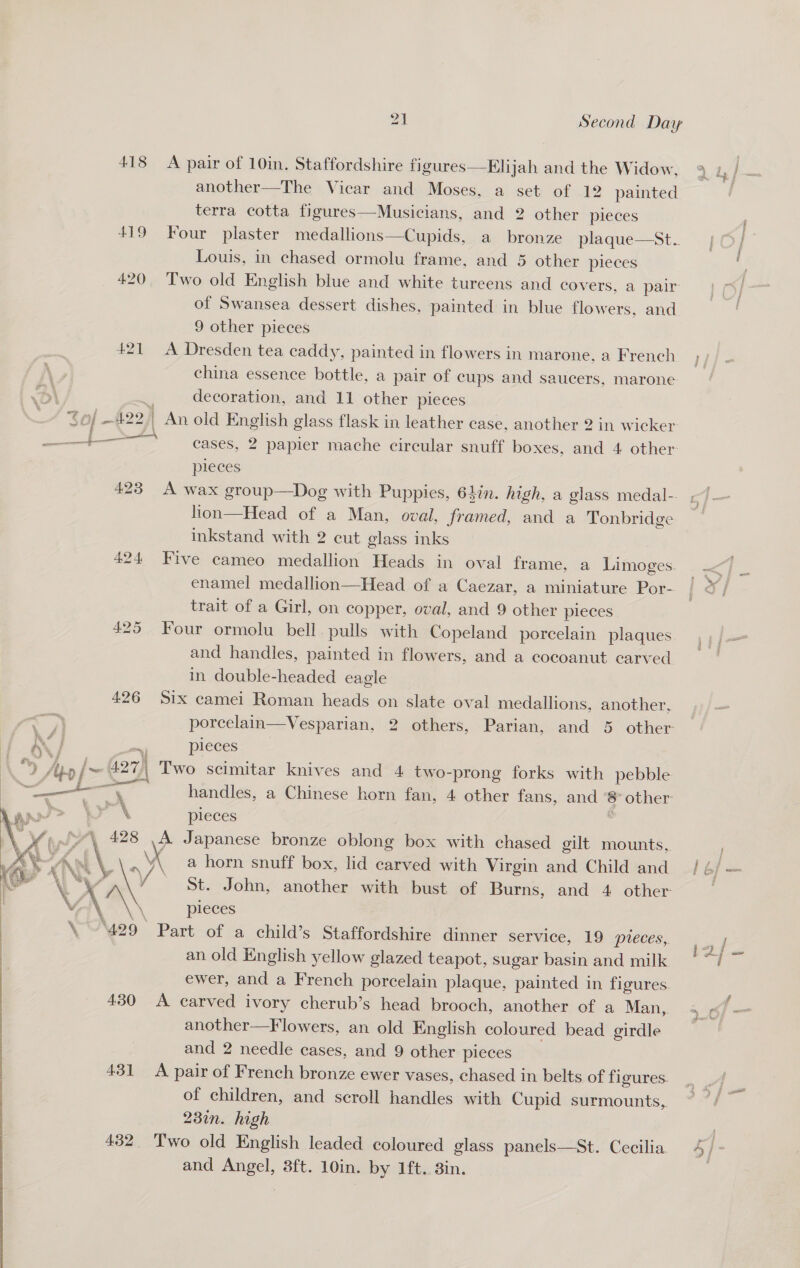 21 Second Day
418 A pair of 10in. Staffordshire figures—Elijah and the Widow,
another—The Vicar and Moses, a set of 12 painted
terra cotta figures—Musicians, and 2 other pieces
419 Four plaster medallions—Cupids, a bronze plaque—St.
Louis, in chased ormolu frame, and 5 other pieces
420 Two old English blue and white tureens and covers, a pair
of Swansea dessert dishes, painted in blue flowers, and
9 other pieces
421 A Dresden tea caddy, painted in flowers in marone, a French
china essence bottle, a pair of cups and saucers, marone
decoration, and 11 other pieces
30/- 422 An old English glass flask in leather case, another 2 in wicker
cases, 2 papier mache circular snuff boxes, and 4 other
pieces
423 A wax group—Dog with Puppies, 6½in. high, a glass medal-
lion—Head of a Man, oval, framed, and a Tonbridge
inkstand with 2 cut glass inks
424 Five cameo medallion Heads in oval frame, a Limoges
enamel medallion—Head of a Caezar, a miniature Por-
trait of a Girl, on copper, oval, and 9 other pieces
425 Four ormolu bell pulls with Copeland porcelain plaques
and handles, painted in flowers, and a cocoanut carved
in double-headed eagle
426 Six camei Roman heads on slate oval medallions, another,
porcelain—Vesparian, 2 others, Parian, and 5 other
pieces
427 Two scimitar knives and 4 two-prong forks with pebble
handles, a Chinese horn fan, 4 other fans, and 8 other
pieces
428 A Japanese bronze oblong box with chased gilt mounts,
a horn snuff box, lid carved with Virgin and Child and
St. John, another with bust of Burns, and 4 other
pieces
429 Part of a child's Staffordshire dinner service, 19 pieces,
an old English yellow glazed teapot, sugar basin and milk
ewer, and a French porcelain plaque, painted in figures
430 A carved ivory cherub's head brooch, another of a Man,
another—Flowers, an old English coloured bead girdle
and 2 needle cases, and 9 other pieces
431 A pair of French bronze ewer vases, chased in belts of figures
of children, and scroll handles with Cupid surmounts,
23in. high
432 Two old English leaded coloured glass panels—St. Cecilia
and Angel, 3ft. 10in. by 1ft. 3in.